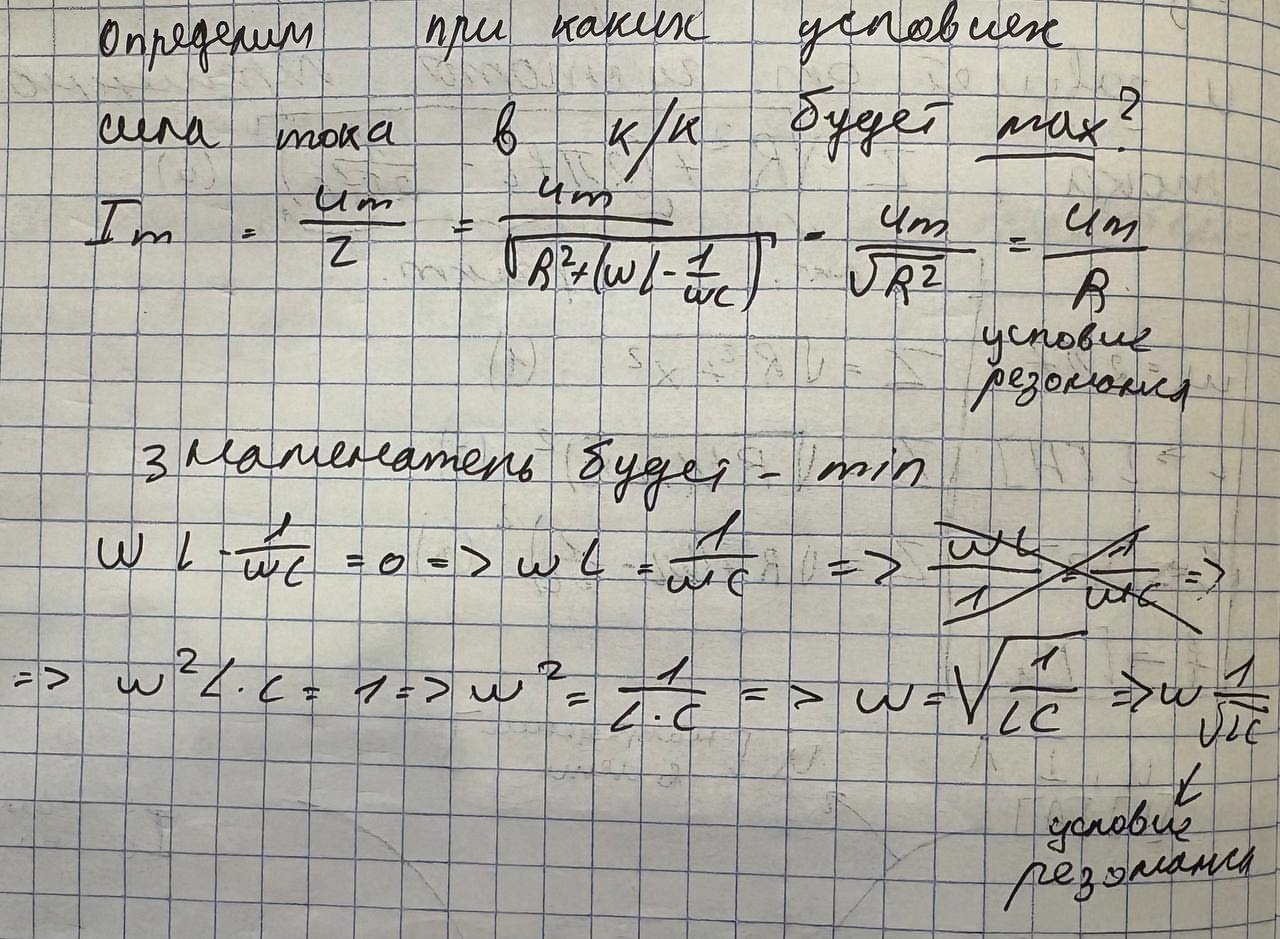 Определим при каких условиях
сила тока в к/к будет max?
Im = Um/Z = Um/√(R²+(WL-1/WC) = Um/√R² = Um/R
условие
резонанса
Знаменатель будет - min
WL-1/WC = 0 => WL = 1/WC => WL/1 = 1/WC =>
=> W²L·C = 1 => W² = 1/L·C => W = √(1/LC) => W 1/√LC
условие
резонанса